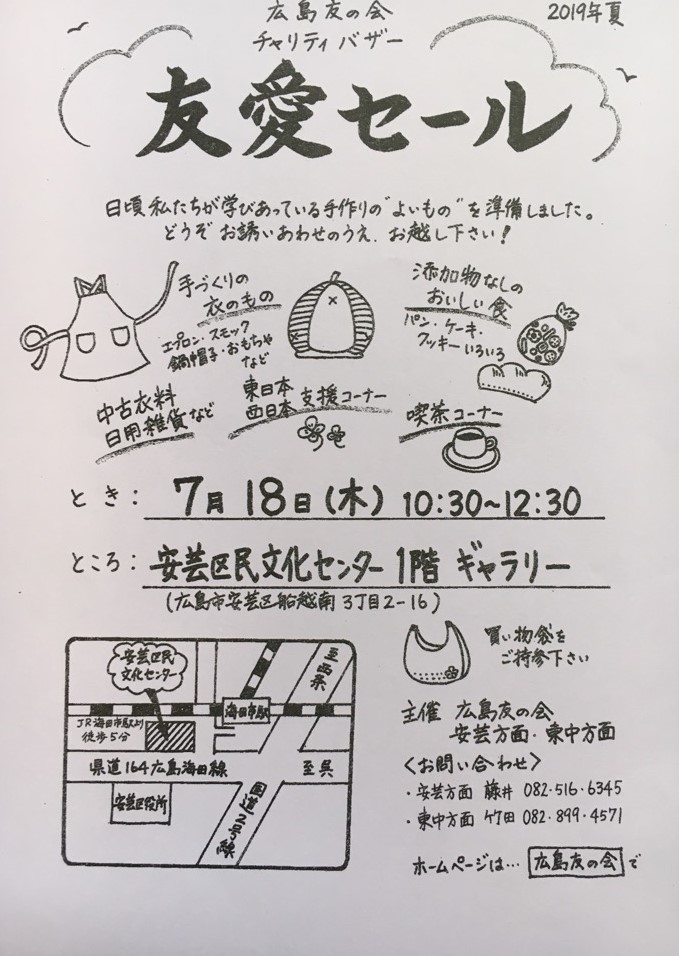 広島友の会
2019年夏
チャリティバザー
友愛セール
日頃私たちが学びあっている手作りの"よいもの"を準備しました。
どうぞお誘いあわせのうえ、お越し下さい！
手づくりの
衣のもの
エプロン・スモック
鍋帽子・おもちゃ
など
添加物なしの
おいしい食
パン・ケーキ・
クッキーいろいろ
中古衣料
日用雑貨など
東日本
西日本 支援コーナー
喫茶コーナー
とき： 7月18日(木) 10:30~12:30
ところ： 安芸区民文化センター 1階 ギャラリー
(広島市安芸区船越南3丁目2-16)
安芸区民
文化センター
至西条
海田市駅
JR海田市駅より
徒歩5分
県道164広島海田線
至呉
安芸区役所
国道2号線
買い物袋を
ご持参下さい
主催 広島友の会
安芸方面・東中方面
<お問い合わせ>
・安芸方面 藤井 082・516・6345
・東中方面 竹田 082・899・4571
ホームページは… 広島友の会 で